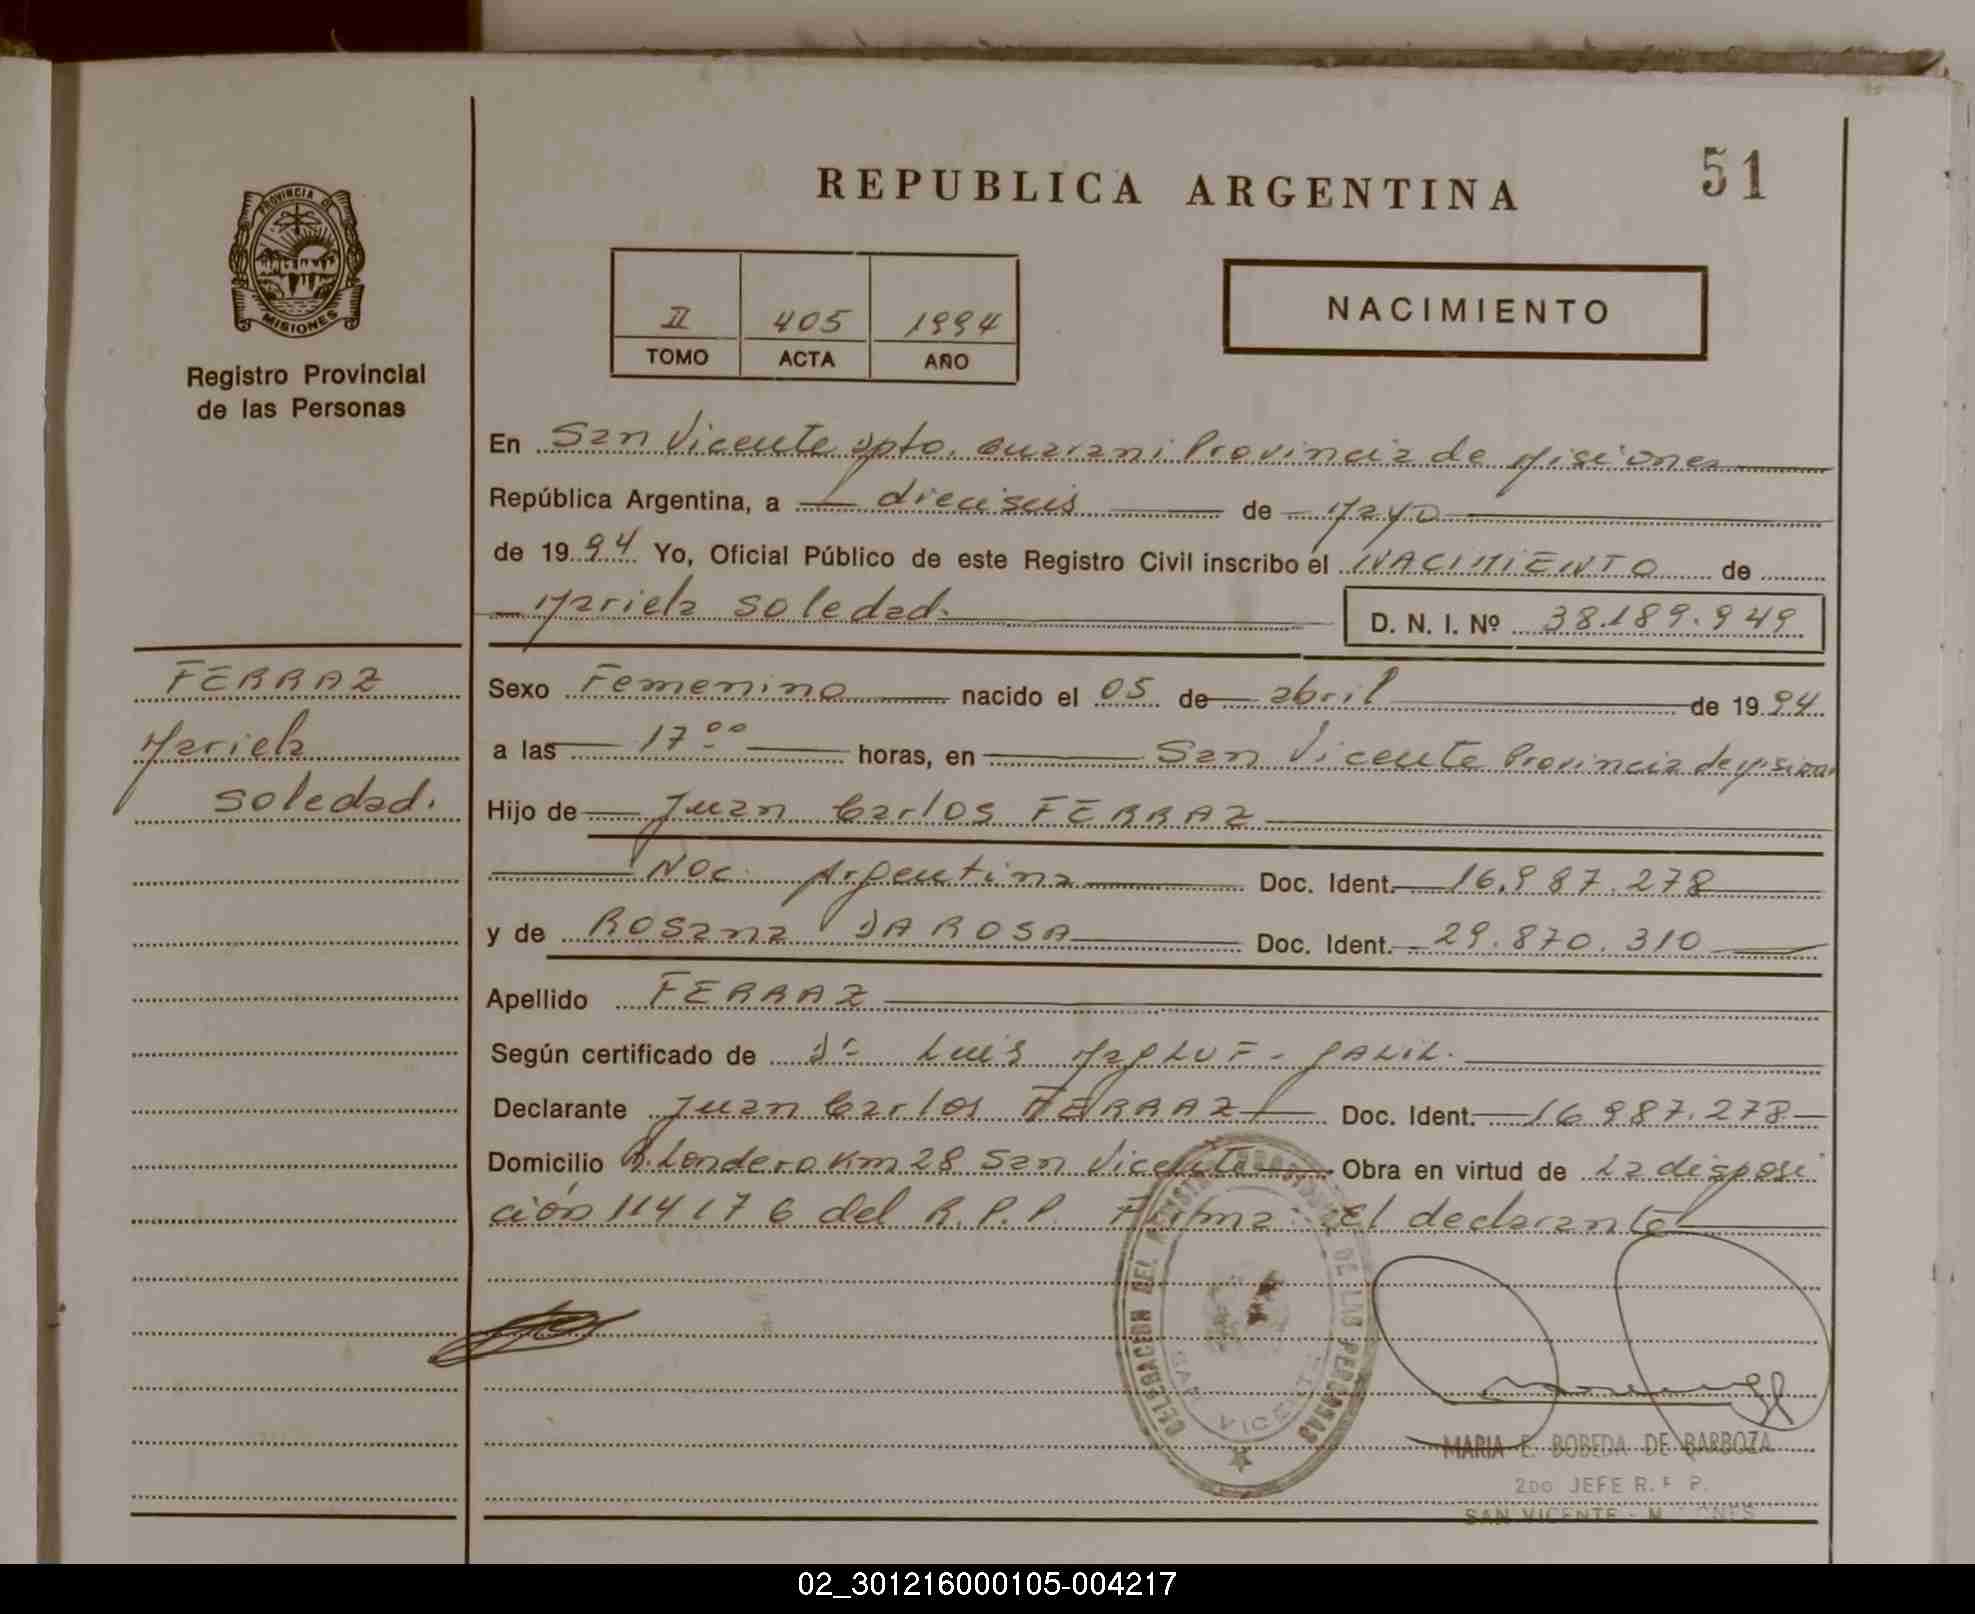 51
REPUBLICA ARGENTINA
PROVINCIA DE
MISIONES
Registro Provincial
de las Personas
II 405 1994
TOMO ACTA AÑO
NACIMIENTO
En San Vicente Dpto. Guarani Provincia de Misiones
República Argentina, a dieciseis de Mayo
de 1994 Yo, Oficial Público de este Registro Civil inscribo el NACIMIENTO de
Mariela Soledad. D. N. I. Nº 38.189.949
FERRAZ
Mariela
Soledad.
Sexo Femenino nacido el 05 de abril de 1994
a las 17 00 horas, en San Vicente Provincia de Misiones
Hijo de Juan Carlos FERRAZ
Nac. Argentina Doc. Ident. 16.987.278
y de Rosana DA ROSA Doc. Ident. 29.870.310
Apellido FERRAZ
Según certificado de Dr. Luis GALIL.
Declarante Juan Carlos FERRAZ Doc. Ident. 16.987.278
Domicilio Londero Km 28 San Vicente Obra en virtud de La disposi
ción 114176 del R.P.P. Firma: El declarante
CELEBRACION DEL REGISTRO PROVINCIAL DE LAS PERSONAS
SAN VICENTE
MARIA E. BOBEDA DE BARBOZA
2DO JEFE R. P. P.
SAN VICENTE - MISIONES
02_301216000105-004217